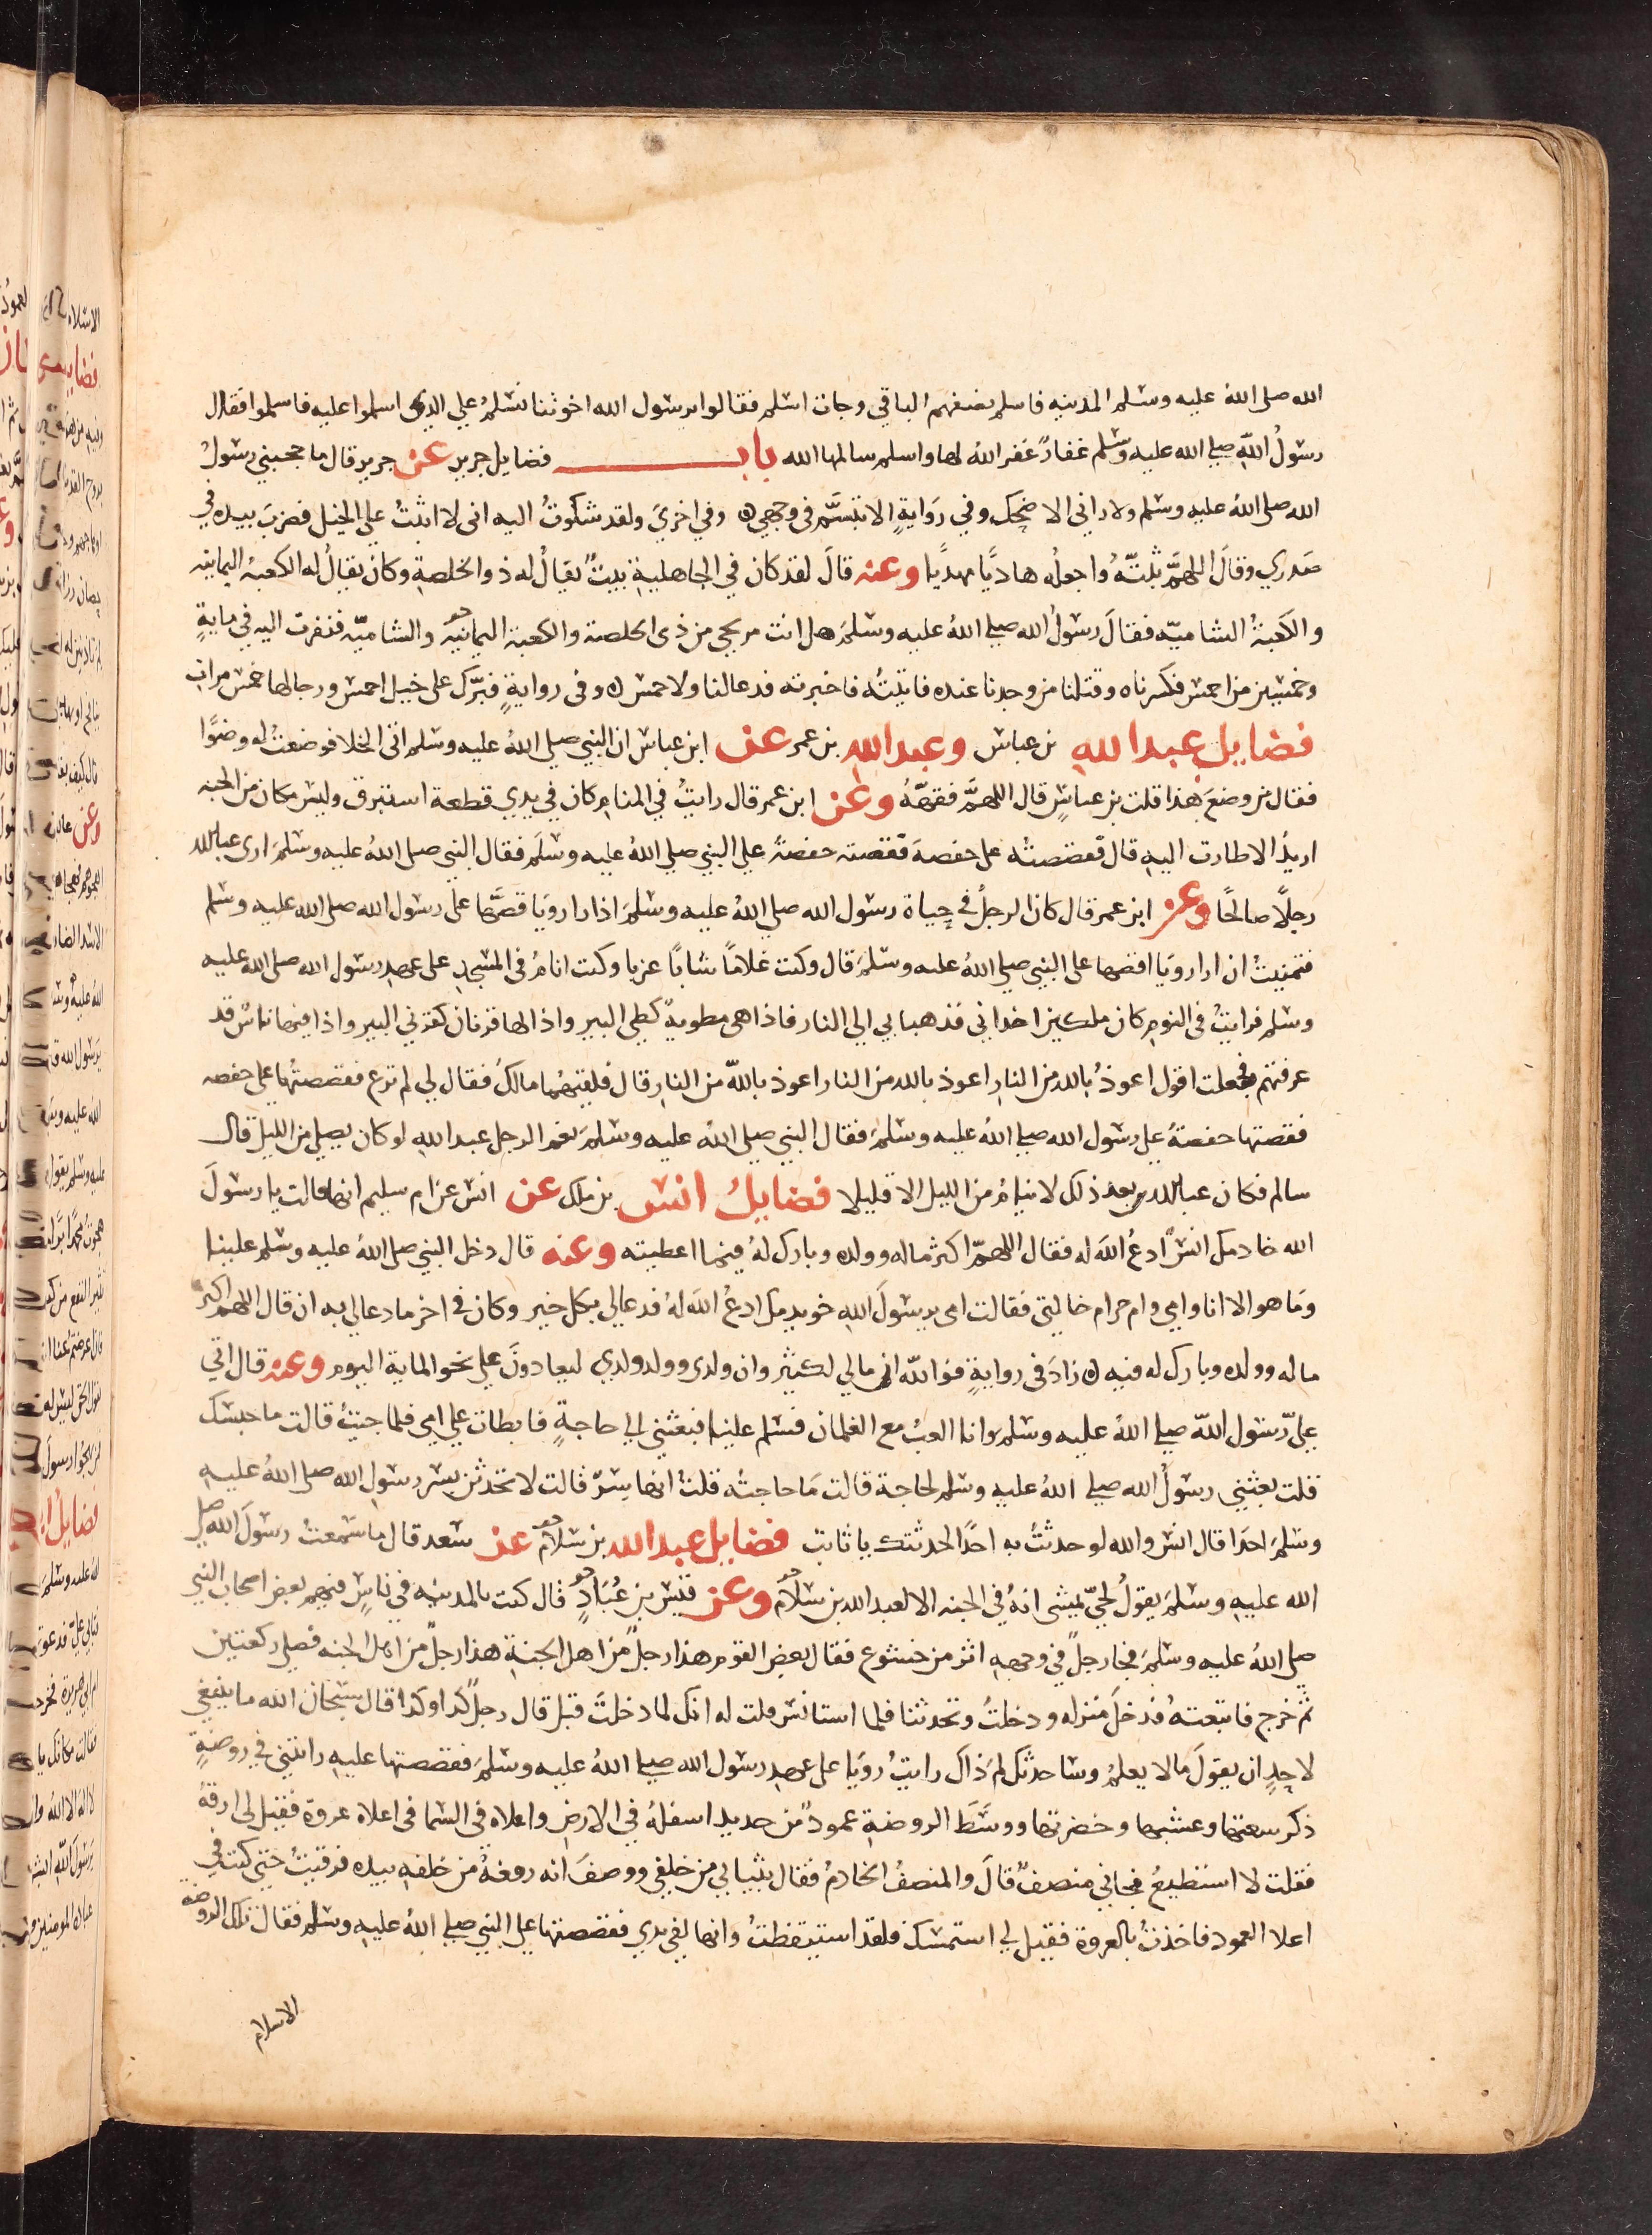 الله صلى الله عليه وسلم المدينه فاسلم نصفهم الباقي وجات اسلم فقالوا يرسول الله اخوتنا نسلم علي الذي اسلموا عليه فاسلموا فقال
رسول الله صلي الله عليه وسلم غفارٌ غفر الله لها واسلم سالمها الله باب فضايل جرير عن جرير قال ما حجبني رسول
الله صلى الله عليه وسلم ولا راني الا ضحك وفي رواية الا تبسم في وجهي ه وفي اخري ولقد شكوت اليه اني لا اثبت علي الخيل فضرب بيده في
صدري وقال اللهم ثبته واجعله هاديًا مهديًا وعنه قال لقد كان في الجاهلية بيت يقال له ذو الخلصة وكان يقال له الكعبة اليمانيه
والكعبة الشاميه فقال رسول الله صلي الله عليه وسلم هل انت مريحي من ذي الخلصة والكعبة اليمانيه والشاميه فنفرت اليه في ماية
وخمسين من احمس فكسرناه وقتلنا من وجدنا عنده فاتيته فاخبرته فدعا لنا ولاحمس ه وفي رواية فبرك على خيل احمس ورجالها خمس مرات
فضايل عبد الله بن عباس وعبد الله بن عمر عن ابن عباس ان النبي صلي الله عليه وسلم اتى الخلا فوضعت له وضوًا
فقال من وضع هذا قلت بن عباس قال اللهم فقهه وعن ابن عمر قال رايت في المنام كان في يدي قطعة استبرق وليس مكان من الجنه
اريد الا طارت اليه قال فقصصته على حفصة فقصته حفصة علي النبي صلي الله عليه وسلم فقال النبي صلى الله عليه وسلم ارى عبد الله
رجلًا صالحًا وعن ابن عمر قال كان الرجل في حياة رسول الله صلي الله عليه وسلم اذا راى رويا قصها على رسول الله صلى الله عليه وسلم
فتمنيت ان ارا رويا اقصها على النبي صلي الله عليه وسلم قال وكنت غلامًا شابًا عزبا وكنت انام في المسجد على عهد رسول الله صلى الله عليه
وسلم فرايت في النوم كان ملكين اخذاني فذهبا بي الى النار فاذا هي مطوية كطي البير واذا لها قرنان كقرني البير واذا فيها ناس قد
عرفتهم فجعلت اقول اعوذ بالله من النار اعوذ بالله من النار اعوذ بالله من النار قال فلقيهما مالك فقال لي لم ترع فقصصتها على حفصه
فقصتها حفصة على رسول الله صلي الله عليه وسلم فقال النبي صلى الله عليه وسلم نعم الرجل عبد الله لو كان يصلي من الليل قال
سالم فكان عبد الله بعد ذلك لا ينام من الليل الا قليلا فضايل انس بن ملك عن انس عن ام سليم انها قالت يا رسول
الله خادمك انس ادع الله له فقال اللهم اكثر ماله وولده وبارك له فيما اعطيته وعنه قال دخل النبي صلى الله عليه وسلم علينا
وما هو الا انا وامي وام حرام خالتي فقالت امي يرسول الله خويدمك ادع الله له فدعا لي بكل خير وكان في اخر ما دعا لي به ان قال اللهم اكثر
ماله وولده وبارك له فيه ه زاد في رواية فوالله اني مالي لكثير وان ولدى وولد ولدي ليعادون على نحو الماية اليوم وعنه قال اتي
على رسول الله صلي الله عليه وسلم وانا العب مع الغلمان فسلم علينا فبعثني الي حاجة فابطات علي امي فلما جيت قالت ما حبسك
قلت بعثني رسول الله صلي الله عليه وسلم لحاجة قالت ما حاجته قلت انها سر قالت لا تحدثن بسر رسول الله صلي الله عليه
وسلم احدا قال انس والله لو حدثت به احدًا لحدثتك يا ثابت فضايل عبد الله بن سلام عن سعد قال ما سمعت رسول الله صلى
الله عليه وسلم يقول لحي يمشي انه في الجنه الا لعبد الله بن سلام وعن قيس بن عباد قال كنت بالمدينه في ناس فيهم بعض اصحاب النبي
صلى الله عليه وسلم فجا رجل في وجهه اثر من خشوع فقال بعض القوم هذا رجل من اهل الجنة هذا رجل من اهل الجنه فصلى ركعتين
ثم خرج فاتبعته فدخل منزله ودخلت وتحدثنا فلما استانس قلت له انك لما دخلت قبل قال رجل كذا وكذا قال سبحان الله ما ينبغي
لاحد ان يقول ما لا يعلم وساحدثك لم ذاك رايت رويا على عهد رسول الله صلي الله عليه وسلم فقصصتها عليه رايتني في روضة
ذكر سعتها وعشبها وخضرتها ووسط الروضة عمود من حديد اسفله في الارض واعلاه في السما في اعلاه عروة فقيل لي ارقه
فقلت لا استطيع فجاني منصف قال والمنصف الخادم فقال بثيابي من خلفي ووصف انه رفعه من خلفه بيده فرقيت حتى كنت في
اعلا العمود فاخذت بالعروة فقيل لي استمسك فلقد استيقظت وانها لفي يدي فقصصتها على النبي صلي الله عليه وسلم فقال تلك الروضه
الاسلام